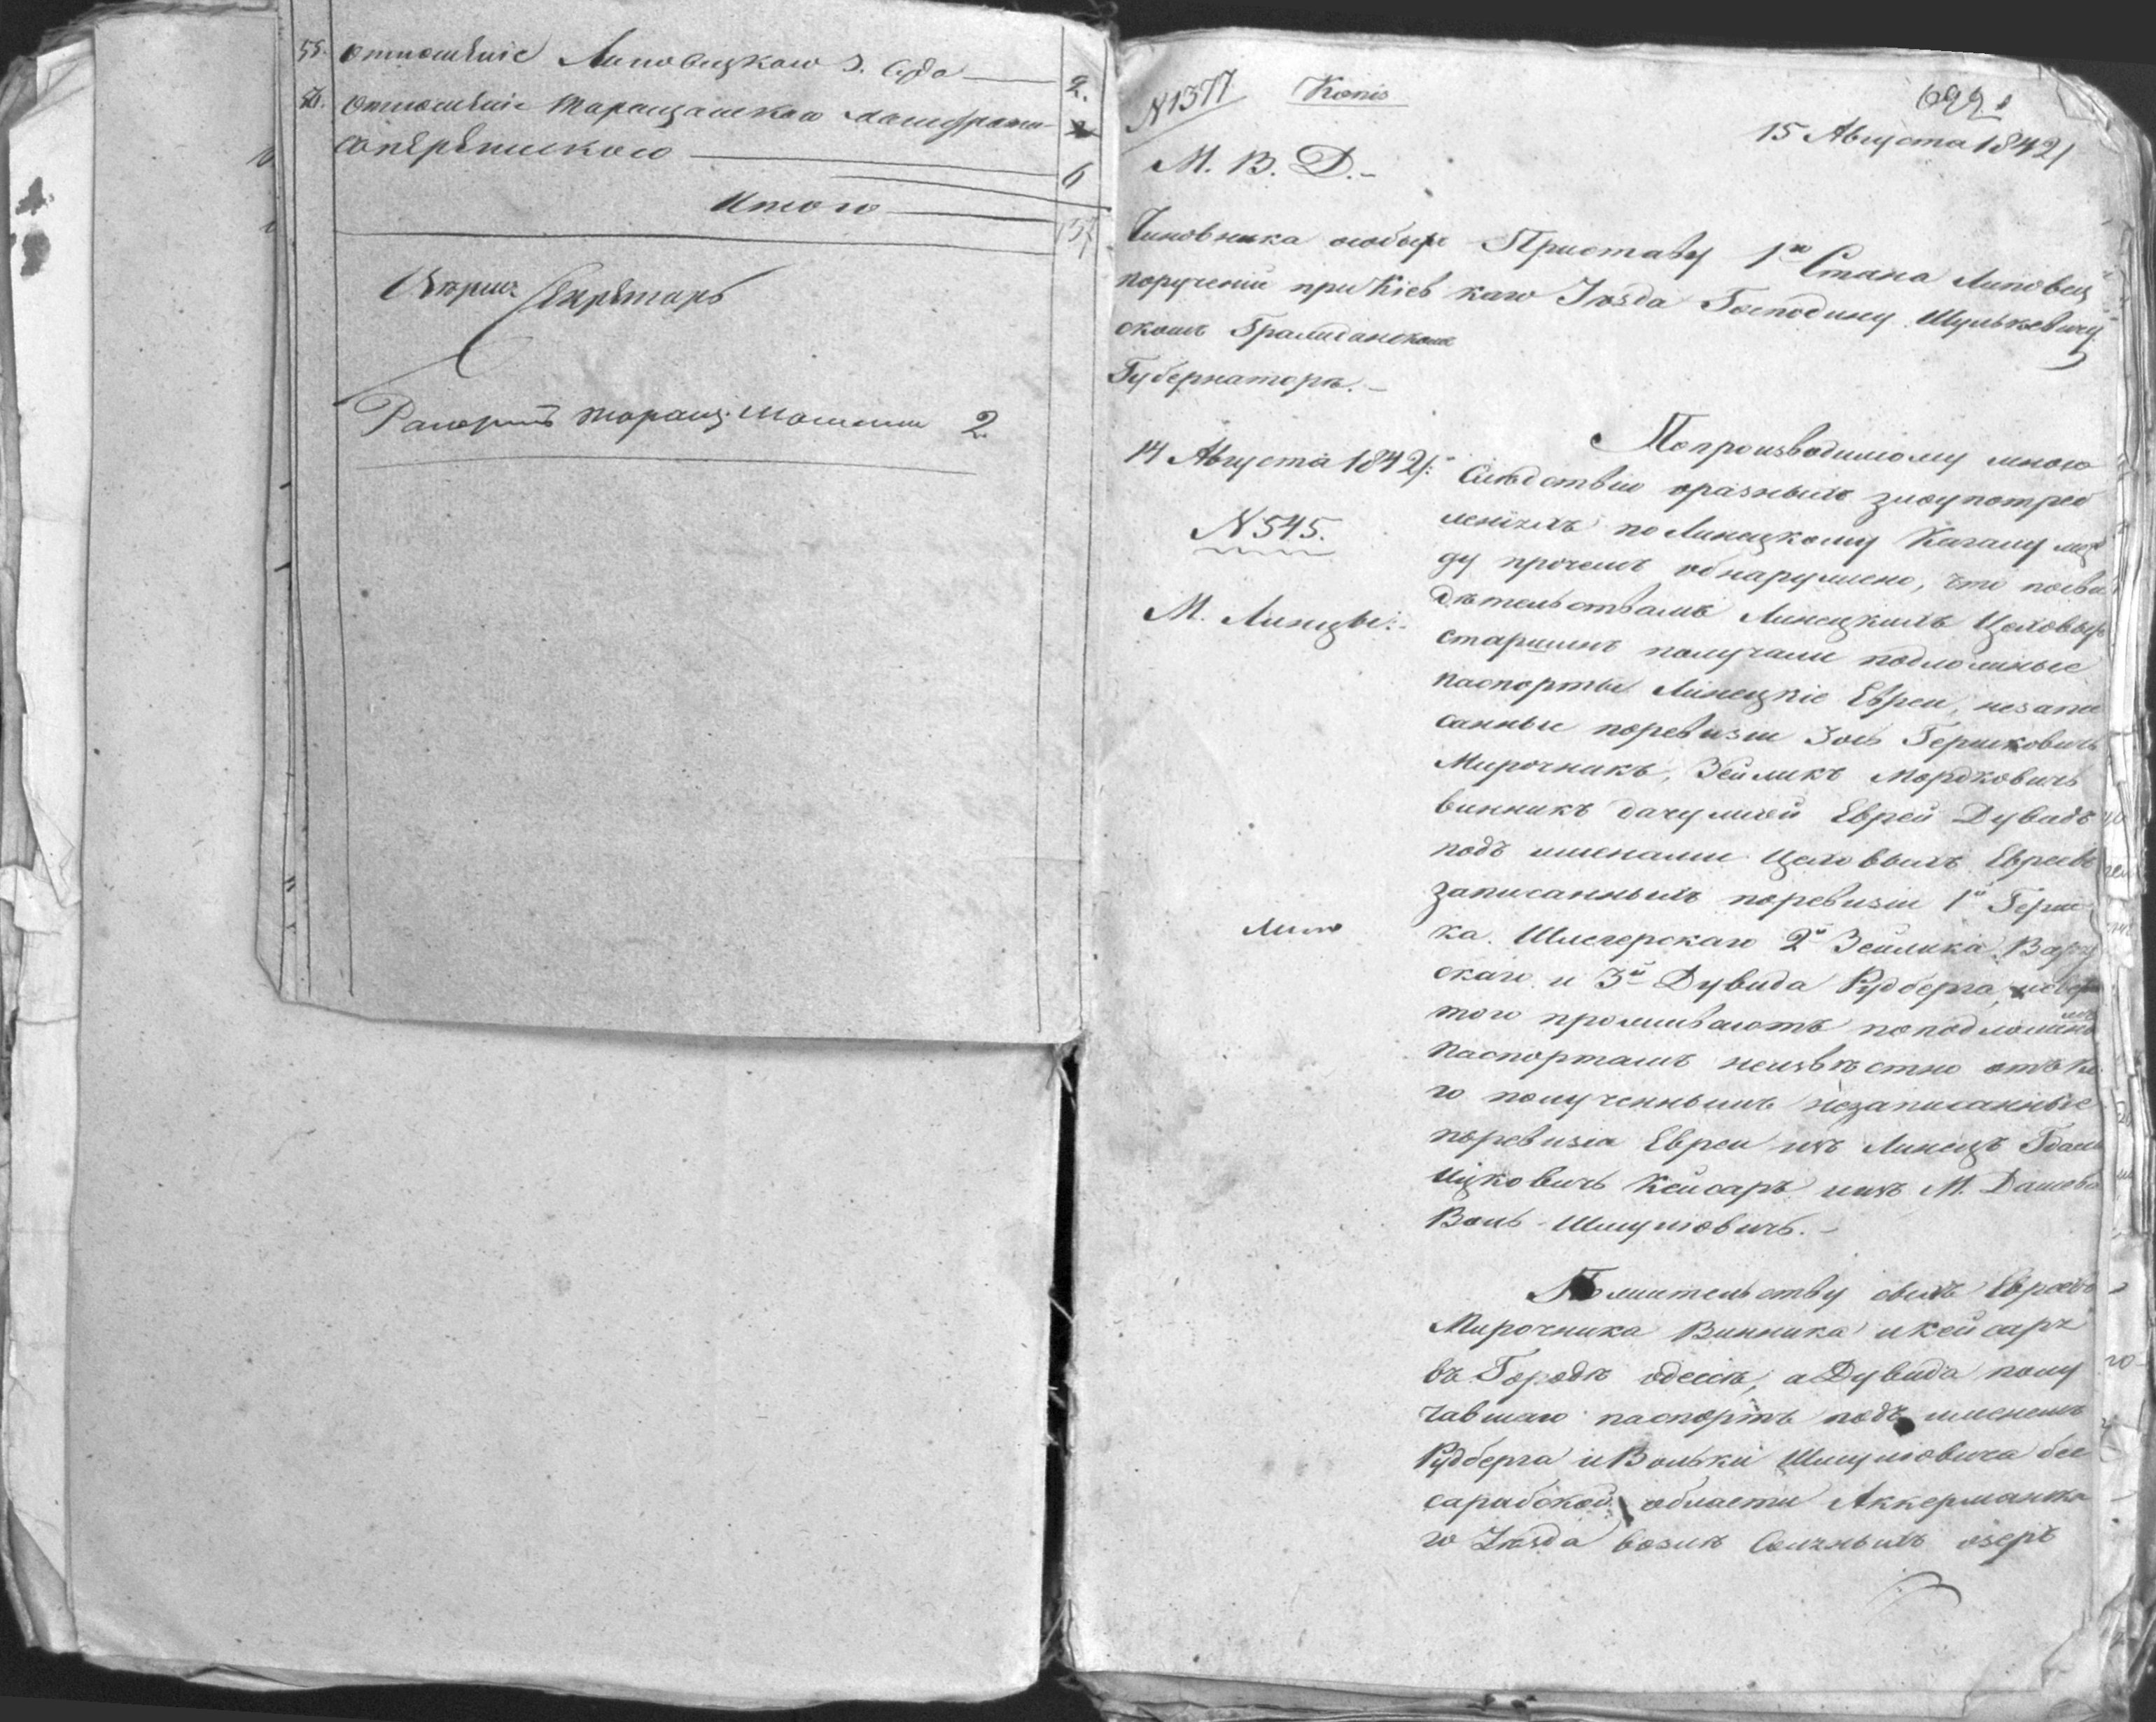 55. отношеніе Липовецкаго З. Суда 2.
56. отношеніе Таращанскаго
6
Итого
Секретарь
Рапортъ Таращ. 2
N 1377
Копія
15 Августа 1842
М. В. Д.
Чиновника особыхъ
порученій при Кіев
скомъ Гражданскомъ
Губернаторѣ.
14 Августа 1842
N 545.
М. Линцы.
Приставу 1го Стана Липовец
каго Уѣзда Господину Шулькевичу
Попроизводимому мною
Слѣдствію оразныхъ злоупотреб
леніяхъ по Линецкому Кагалу меж
ду прочемъ обнаружено, что посви
дѣтельствамъ Линецкихъ Цеховыхъ
старшинъ получали подложные
паспорты Линецкіе Евреи, незапи
санные поревизіи Зось Гершковичъ
Мирочникъ, Зейликъ Мордковичъ
винникъ Еврей Дувидъ
подъ именами Цеховыхъ Евреевъ
записанныхъ поревизіи 1й Герш
ка 2й Зейлика
скаго и 3й Дувида Рудберга,
того проживаютъ поподложнымъ
паспортамъ неизвѣстно отъ ко
го полученнымъ незаписанные
поревизіи Евреи изъ Линецъ
Ицковичъ Кейсаръ изъ М. Дашева
Воль Шмулювичъ.
Пожительству овыхъ Евреевъ
Мирочника Винника и Кейсаръ
въ Городѣ одессѣ, а Дувида полу
чавшаго паспортъ подъ именемъ
Рудберга и Вольки Шмулювича бес
сарабской области Аккерманска
го Уѣзда возлѣ Солчныхъ озеръ